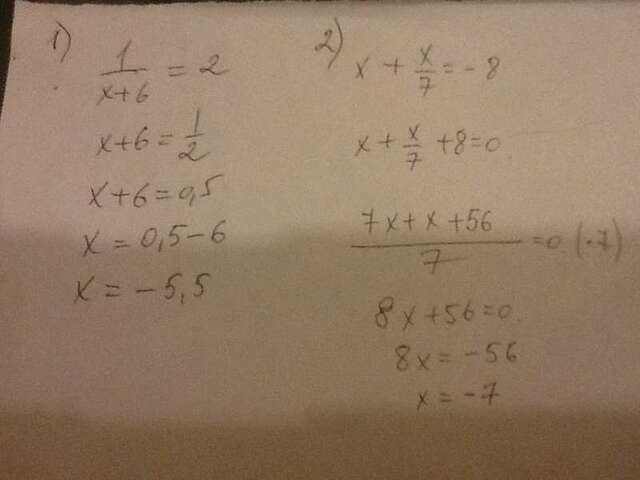 1)
1/(x+6) = 2
x+6 = 1/2
x+6 = 0,5
x = 0,5-6
x = -5,5
2)
x + x/7 = -8
x + x/7 + 8 = 0
(7x+x+56)/7 = 0 (·7)
8x+56=0
8x = -56
x = -7